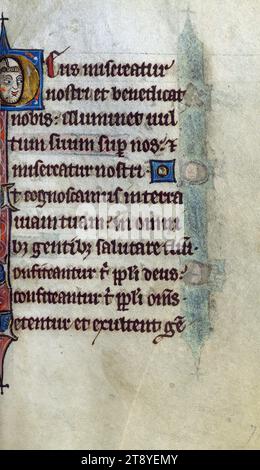 Deus misereatur
nostri et benedicat
nobis · illuminet uul
tum suum sup nos · et
misereatur nostri ·
t cognoscamus in terra
uiam tuam · in omni
bȝ gentibȝ salutare tuū ·
onfiteantur t̄ ppli deus
confiteantur t̄ ppli om̄s
etentur et exultent gē
alamy
Image ID: 2T8YEMY
www.alamy.com